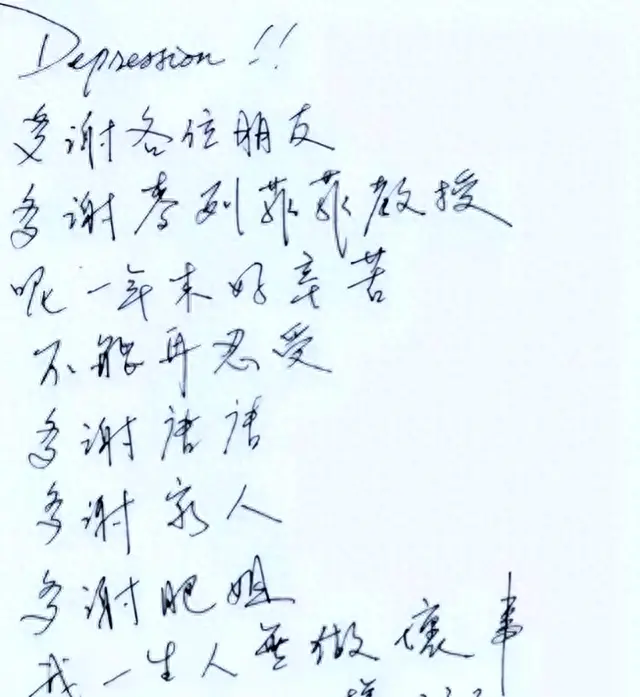 Depression !!
多謝各位朋友
多謝麥列菲菲教授
呢一年來好辛苦
不能再忍受
多謝唐唐
多謝家人
多謝肥姐
我一生人無做壞事